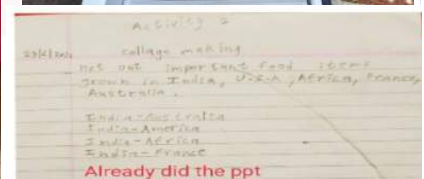 Activity 2
collage making
list out important food items
grown in India, U.S.A, Africa, France,
Australia.
India-Australia
India-America
India-Africa
India-France
Already did the ppt